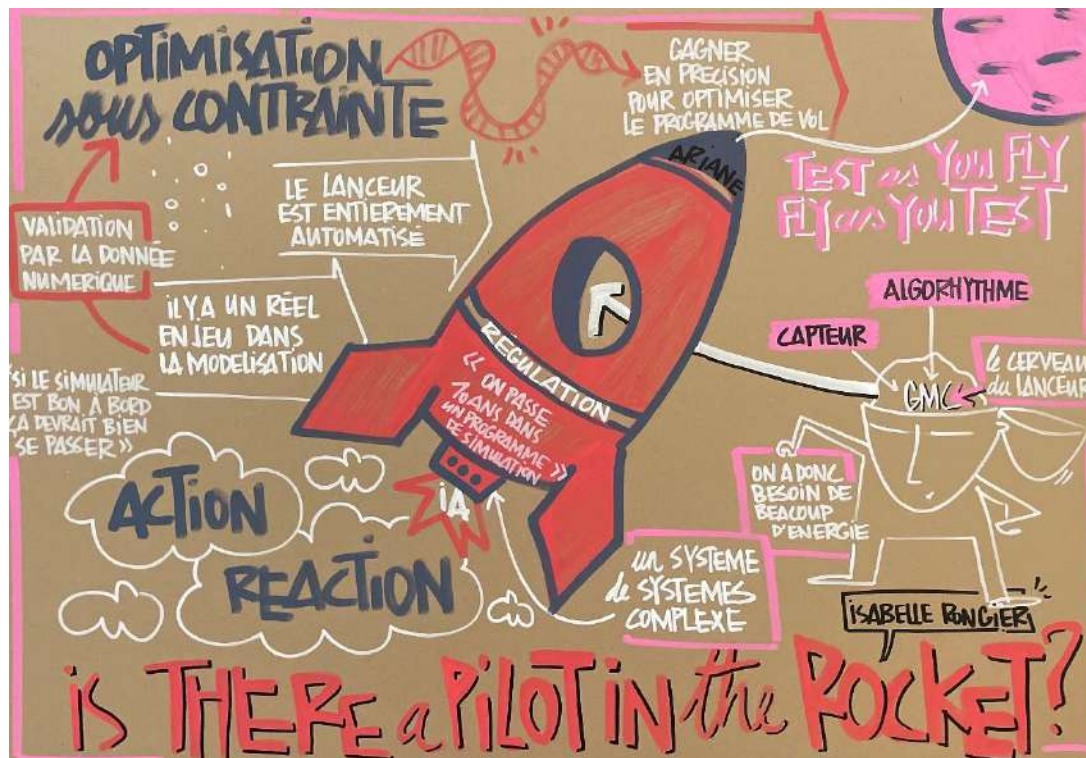 OPTIMISATION
sous CONTRAINTE
GAGNER
EN PRECISION
POUR OPTIMISER
LE PROGRAMME DE VOL
ARIANE
TEST as YOU FLY
FLY as YOU TEST
VALIDATION
PAR LA DONNÉE
NUMERIQUE
LE LANCEUR
EST ENTIEREMENT
AUTOMATISÉ
IL Y A UN RÉEL
ENJEU DANS
LA MODELISATION
SI LE SIMULATEUR
EST BON, A BORD
ÇA DEVRAIT BIEN
SE PASSER »
RÉGULATION
« ON PASSE
70 ANS DANS
UN PROGRAMME
DE SIMULATION »
IA
ALGORHYTHME
CAPTEUR
GMC
le CERVEAU
du LANCEUR
ON A DONC
BESOIN DE
BEACOUP
D'ENERGIE
ACTION
REACTION
un SYSTEME
de SYSTEMES
COMPLEXE
ISABELLE RONGIER
IS THERE a PILOT IN the ROCKET?